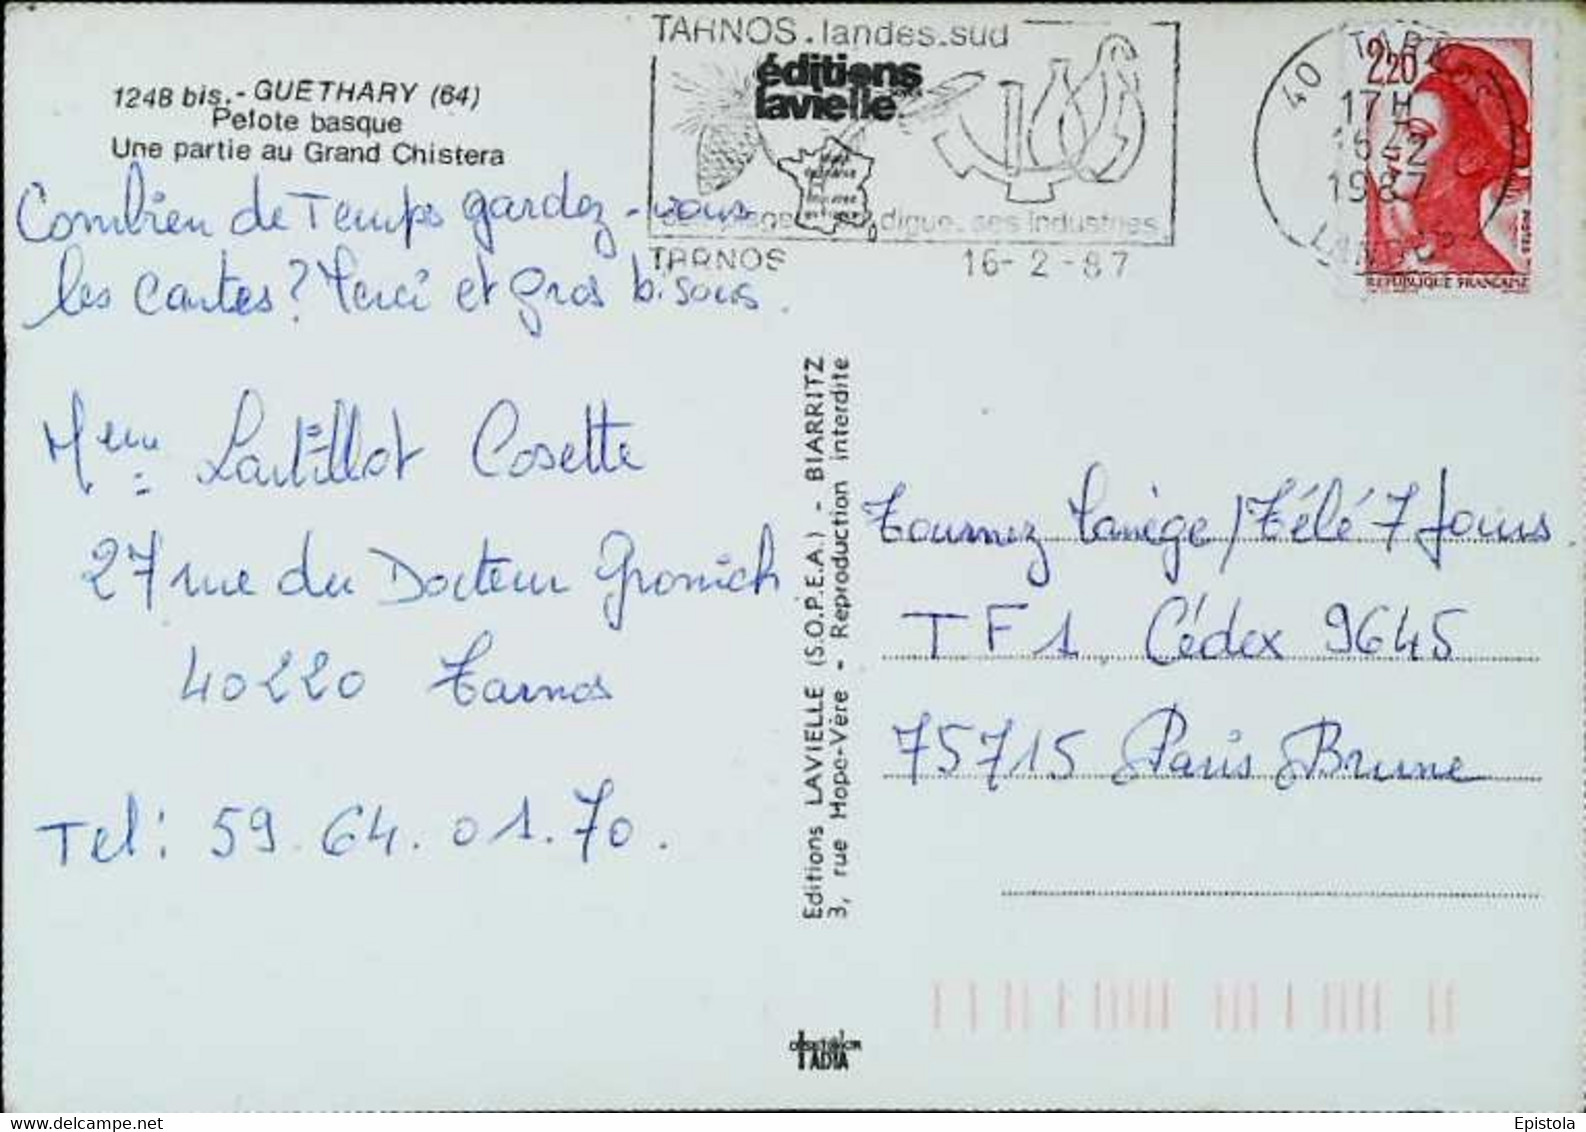 1248 bis.- GUETHARY (64)
Pelote basque
Une partie au Grand Chistera
Combien de Temps gardez-vous
les cartes? Merci et gros bisous.
Mme Lartillot Cosette
27 rue du Docteur Gronich
40220 Tarnos
Tel: 59.64.01.70.
TARNOS.landes.sud
éditions
lavielle
digue. ses industries
TARNOS 16-2-87
40 TARNOS
17H
1987
LANDES
2,20
POSTES
REPUBLIQUE FRANÇAISE
Editions LAVIELLE (S.O.P.E.A.) - BIARRITZ
3, rue Hope-Vère - Reproduction interdite
Tournez Manège/Télé 7 Jours
TF1 Cédex 9645
75715 Paris Brune
IADIA
Epistola